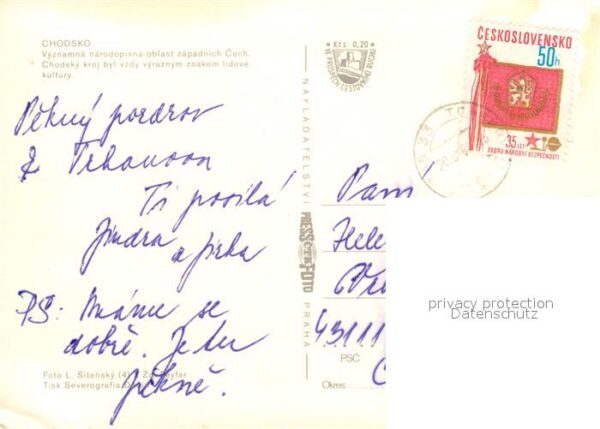 CHODSKO
Významná národopisná oblast západních Čech.
Chodský kroj byl vždy výrazným znakem lidové
kultury.
Pěkný pozdrav
z Trhanova
Ti posílá
Jindra a Jirka
PS: Máme se
dobře. Je tu
pěkně.
Foto L. Sitenský (4)
Tisk Severografia
NAKLADATELSTVÍ
PRESSFOTO
PRAHA
Kčs 0,20
VE PROSPĚCH CESTOVNÍHO RUCHU
ČESKOSLOVENSKO
50h
35 LET
SBORU NÁRODNÍ BEZPEČNOSTI
Paní
Hele
43111
PSČ
Okres:
privacy protection
Datenschutz